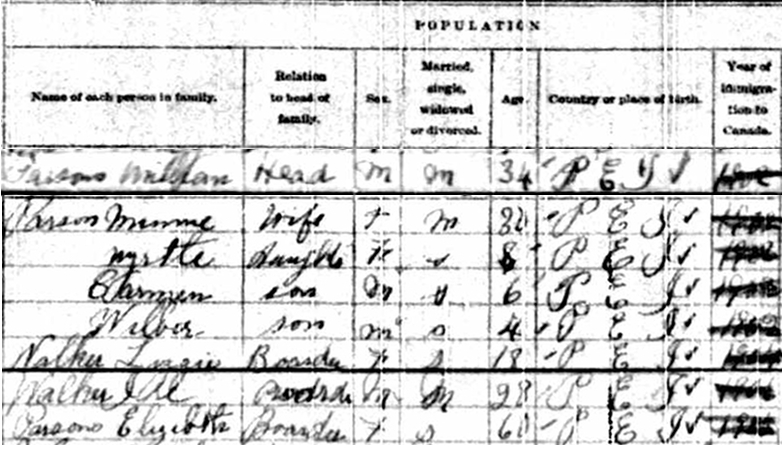 POPULATION
Name of each person in family. Relation to head of family. Sex. Married, single, widowed or divorced. Age. Country or place of birth. Year of immigration to Canada.
Parsons William Head M M 34 P E I
Parson Minnie Wife F M P E I
Myrtle Daughte F s 8 P E I
Carmen son M s 6 P E I
Wilber son M s 4 P E I
Walker Lizzie Boarder F s 18 P E I
Walker M M 28 P E I
Parsons Elizabeth Boarder F s 60 P E I